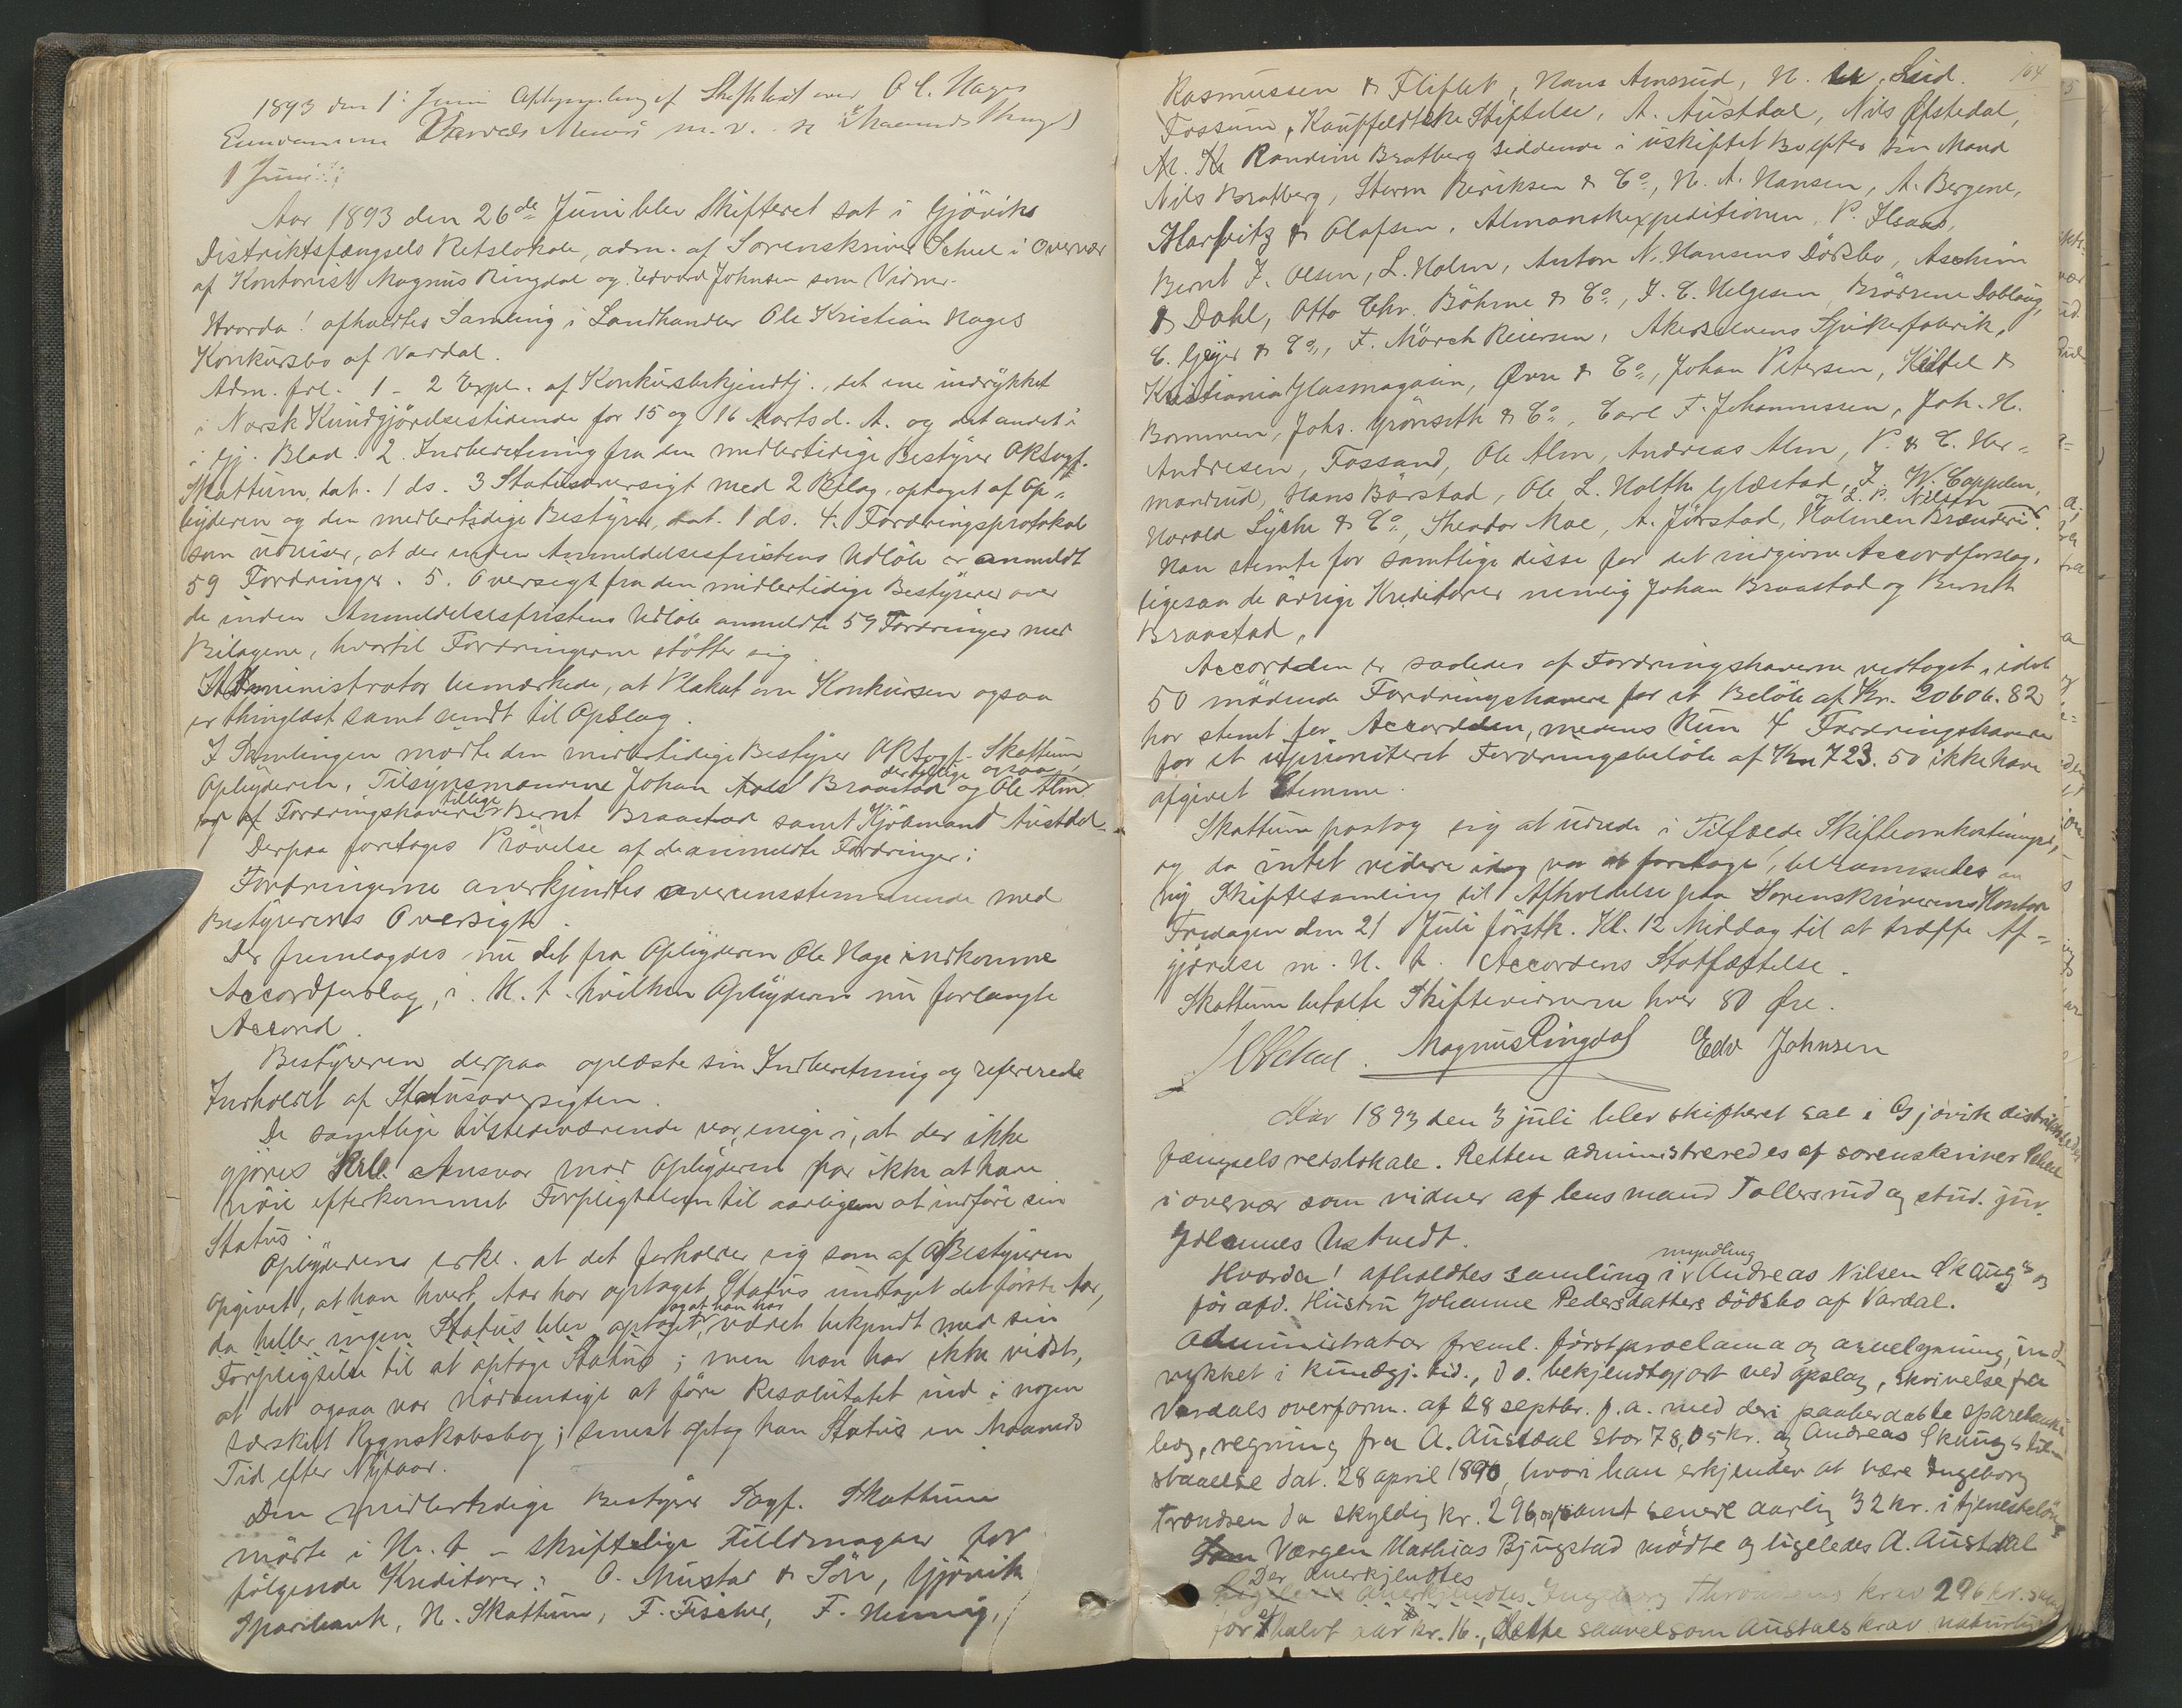 1893 den 1: Juni
m. v.
1 Juni
Aar 1893 den 26de Juni blev Skifteret sat i Gjöviks
Distriktsfængsels Retslokale, adm. af Sorenskriver Schue i Overvær
af Kontorist Magnus Ringdal og Edvard Johnsen som Vidner.
Hvorda! afholdtes Samling i Landhandler Ole Kristian Hages
Konkursbo af Vardal.
Adm. frl. 1 - 2 Expl. af Konkursbekjendtgj., det ene indrykket
i Norsk Kundgjörelsestidende for 15 og 16 Marts d. A. og det andet i
i Gj. Blad. 2. Indberetning fra den midlertidige Bestyrer ORSagf.
Skattum, dat. 1 ds. 3 Statusoversigt med 2 Bilag, optaget af Op-
byderen og den midlertidige Bestyrer, dat. 1 ds. 4. Fordringsprotokol
som udviser, at der inden Anmeldelsesfristens Udlöb er anmeldt
59 Fordringer. 5. Oversigt fra den midlertidige Bestyrer over
de inden Anmeldelsesfristens Udlöb anmeldte 59 Fordringer med
Bilagene, hvortil Fordringerne stötter sig.
Administrator bemærkede, at Plakat om Konkursen ogsaa
er thinglæst samt sendt til Opslag.
I Samlingen mödte den midlertidige Bestyrer ORSagf. Skattum,
Opbyderen, Tilsynsmændene Johan Braastad og Ole Alm
der tillige ogsaa
og af Fordringshavere tillige Bernt Braastad samt Kjöbmand Austdal.
Derpaa foretoges Prövelse af de anmeldte Fordringer:
Fordringerne anerkjendtes overensstemmende med
Bestyrerens Oversigt.
Der fremlagdes nu det fra Opbyderen Ole Hage indkomne
Accordforslag, i H. t. hvilken Opbyderen nu forlangte
Accord.
Bestyreren derpaa oplæste sin Indberetning og refererede
Indholdet af Statusoversigten.
De samtlige tilstedeværende var enige i, at der ikke
gjöres Ansvar mod Opbyderen for ikke at have
nöie efterkommet Forpligtelsen til aarligen at indföre sin
Status.
Opbyderen erkl. at det forholder sig som af Bestyreren
opgivet, at han hvert Aar har optaget Status undtaget det förste Aar,
da heller ingen Status blev optaget, og at han har været bekjendt med sin
Forpligtelse til at optage Status; men han har ikke vidst,
at det ogsaa var nödvendigt at före Resultatet ind i nogen
særskilt Regnskabsbog; senest optog han Status en Maaneds
Tid efter Nytaar.
Den midlertidige Bestyrer Sagf. Skattum
mödte i H. t. skriftelige Fuldmagter for
fölgende Kreditorer: O. Mustad & Sön, Gjövik
Sparebank, H. Skattum, F. Fischer, F. Hennig,
164
Rasmussen & Fliflet, Hans Amsrud, N.
Fossum, Stiftelse, A. Austdal, Nils Öfstedal,
Randine Bratberg siddende i uskiftet Bo efter sin Mand
Nils Bratberg, Storm Beriksen & Co, N. A. Hansen, A. Bergene,
Harbitz & Olafsen, Almanakexpeditionen, P.
Bernt J. Olsen, L. Holm, Anton N. Hansens Dödsbo, Aschim
& Dahl, Otto Chr. Böhme & Co, J. C. Helgesen, Brödrene Dobloug,
C. Geijer & Co, F. Mörch Reiersen, Akerselvens Spikerfabrik,
Kristiania Glasmagasin, Övre & Co, Johan Petersen, Kittel &
Bommen, Johs. Grönseth & Co, Carl F. Johannessen, Joh. H.
Andresen, Fossand, Ole Alm, Andreas Alm, P. & C. Her-
manrud, Hans Börstad, Ole L. Holth Glæstad, J. W. Cappelen,
Harald Lyche & Co, Theodor Moe, A. Jörstad, Holmen Brænderi og L. P. Nilsen.
Han stemte for samtlige disse for det indgivne Accordforslag,
ligesaa de övrige Kreditorer nemlig Johan Braastad og Bernt
Braastad,
Accorden er saaledes af Fordringshaverne vedtaget, idet
50 mödende Fordringshavere for et Belöb af Kr. 20606.82
har stemt for Accorden, medens kun 4 Fordringshavere
for et uprioriteret Fordringsbelöb af Kr 723.50 ikke have
afgivet Stemme.
Skattum paatog sig at udrede i Tilfælde Skifteomkostninger,
og da intet videre idag var at foretage, beramm​edes en
ny Skiftesamling til Afholdelse paa Sorenskriverens Kontor
Fredagen den 21 Juli förstk. Kl. 12 Middag til at træffe Af-
gjörelse m. H. t. Accordens Stadfæstelse.
Skattum betalte Skiftevidnerne hver 80 Öre.
Magnus Ringdal Edv Johnsen
Aar 1893 den 3 juli blev skifteret sat i Gjövik distrikts-
fængsels retslokale. Retten administreredes af sorenskriver Schue
i overvær som vidner af lensmand Tollersrud og stud. jur.
Johannes Ustvedt.
Hvorda! afholdtes samling i myndling Andreas Nilsen Skaugs og
för afd. Hustru Johanne Pedersdatters dödsbo af Vardal.
Administrator freml. först proclama og arvelysning, ind-
rykket i Kundgj. tid., do. bekjendtgjort ved opslag, skrivelse fra
Vardals overform. af 28 septbr. f. a. med deri paaberaabte sparebank-
bog, regning fra A. Austdal stor 78,05 kr. og Andreas Skaugs til-
staaelse dat. 28 april 1890, hvori han erkjender at være Ingeborg
Trondsen da skyldig kr. 296,00 samt senere aarlig 32 kr. i tjenestelön.
Værgen Mathias Bjugstad mödte og ligeledes A. Austdal
Der anerkjendtes
anerkjendtes Ingeborg Throndsens krav 296 kr.
for et halvt aar kr. 16., Dette saavelsom Austdals krav